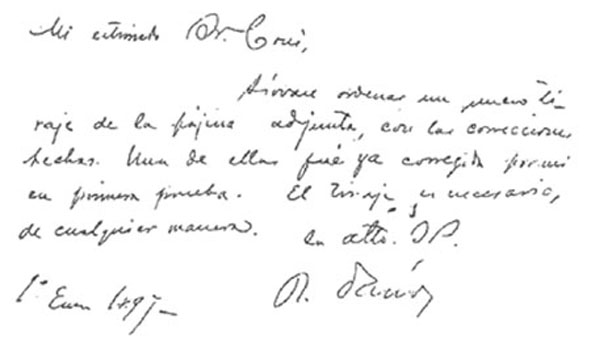 Mi estimado Sr. Coni,
Sírvase ordenar un nuevo ti-
raje de la pájina adjunta, con las correcciones
hechas. Una de ellas fué ya corregida por mi
en primera prueba. El tiraje es necesario,
de cualquier manera. Su affo. S.
1º Enero 1897–
R. Darío